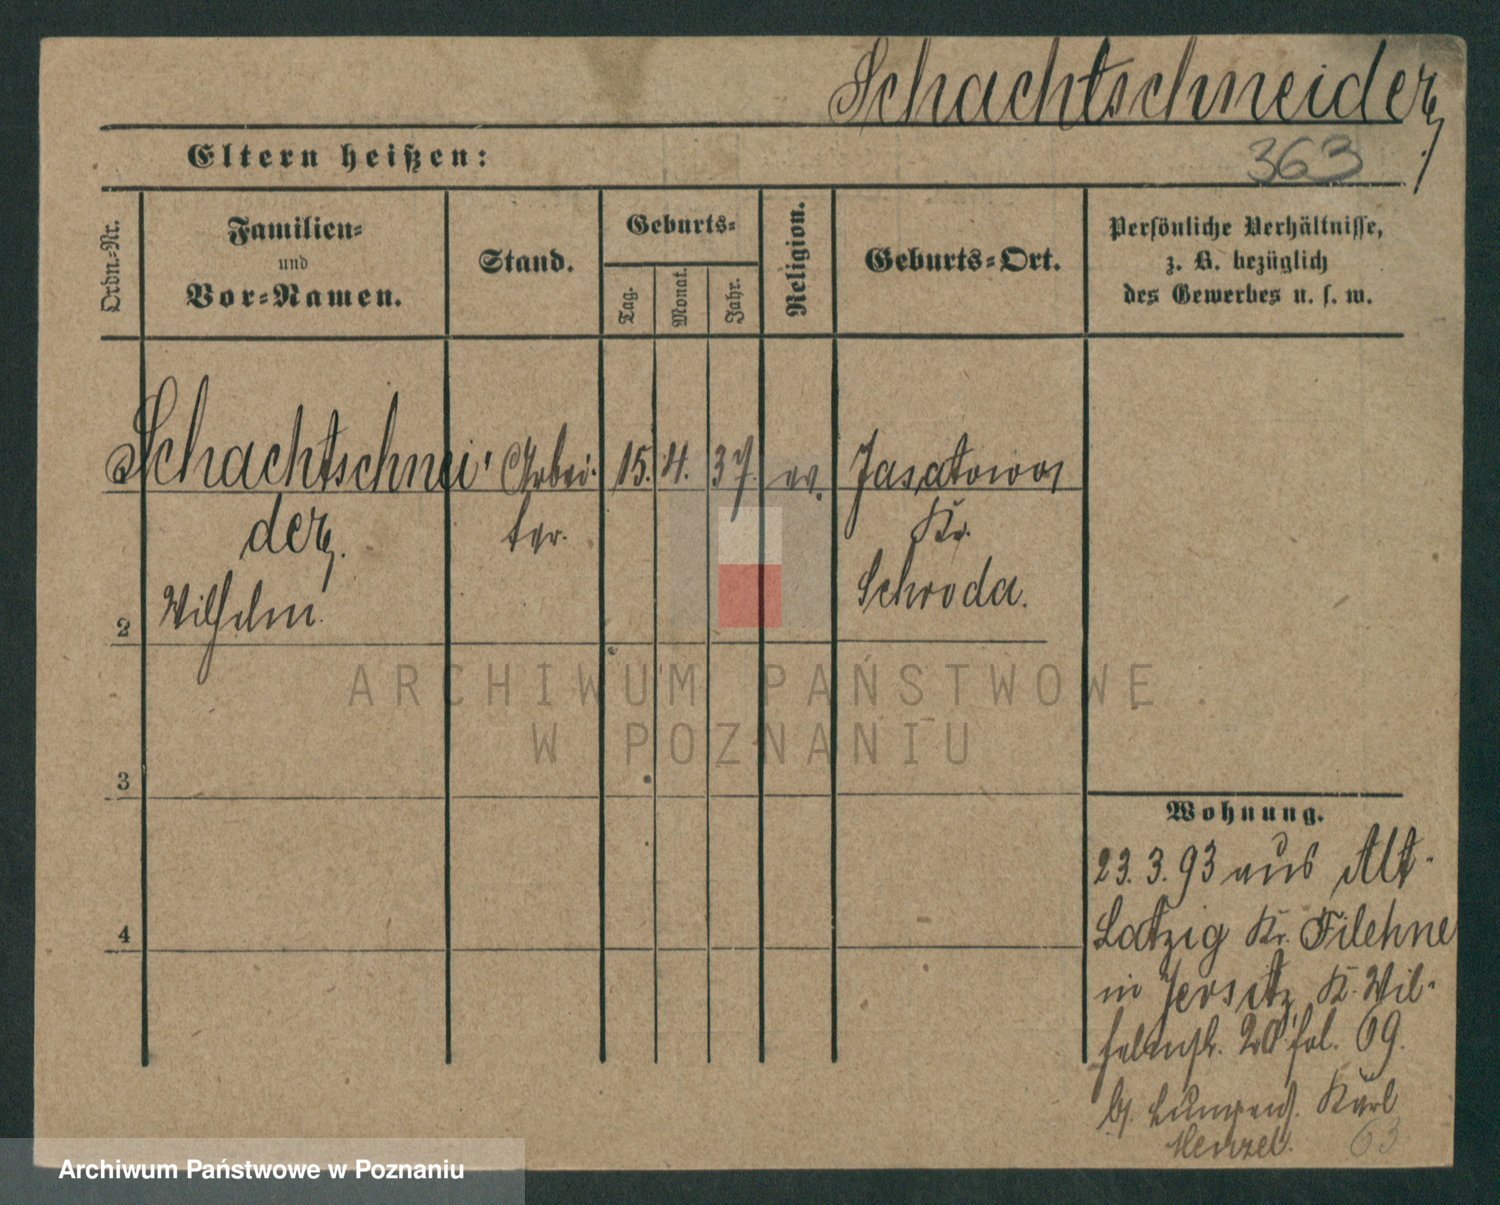 Schachtschneider,
363
Eltern heißen:
Ordn.-Nr.
Familien-
und
Vor-Namen.
Stand.
Geburts-
Tag.
Monat.
Jahr.
Religion.
Geburts-Ort.
Persönliche Verhältnisse,
z. B. bezüglich
des Gewerbes u. s. w.
Schachtschnei- Arbei- 15. 4. 37. ev. Jasatowo
der, ter. Kr.
Wilhelm. Schroda.
2
3
4
Wohnung.
23. 3. 93 aus Alt-
Latzig Kr. Filehne
in Jersitz, K. Wil-
helmstr. 20 fol. 69.
b/ Karl
Henzel. 63
ARCHIWUM PAŃSTWOWE
W POZNANIU
Archiwum Państwowe w Poznaniu